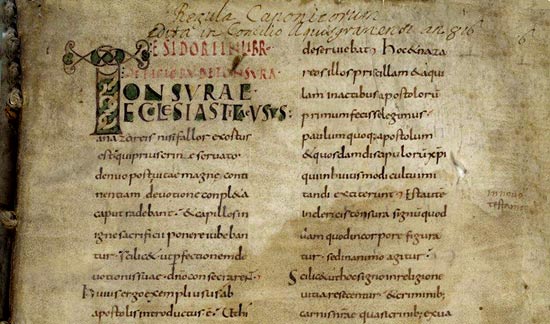 Regula Canonicorum
edita in Concilio Aquisgranensi an 816
ESIDORI IN LIBR
DE TONSURA
TONSURAE
ECCLESIASTICE USUS:
anazareis nisi fallor exortus
est qui prius crine seruato
denuo post uitae magne conti
nentiam deuotione conpl&a
caput radebant · & capillos in
igne sacrificii ponere iubeban
tur · Scilic& ut perfectionem de
uotionis suae · dno consecraren
huius ergo exempli usus ab
apostolis introductus e · Ut hi
deseruiebat · Hoc & naza
reos illos priscillam & aqui
lam in actibus apostolorū
primum fecisse legimus
paulum quoq; apostolum
& quosdam discipulorū xpi
qui in huiusmodi cultu imi
tandi exciterunt · Est autē
in clericis tonsura signū quod
dam quod in corpore figura
tur · sed in animo agitur ·
Scilic& ut hoc signo in religione
uitia resecentur & criminib;
carnis nrae quasi crinib; exua
in nouo
testament